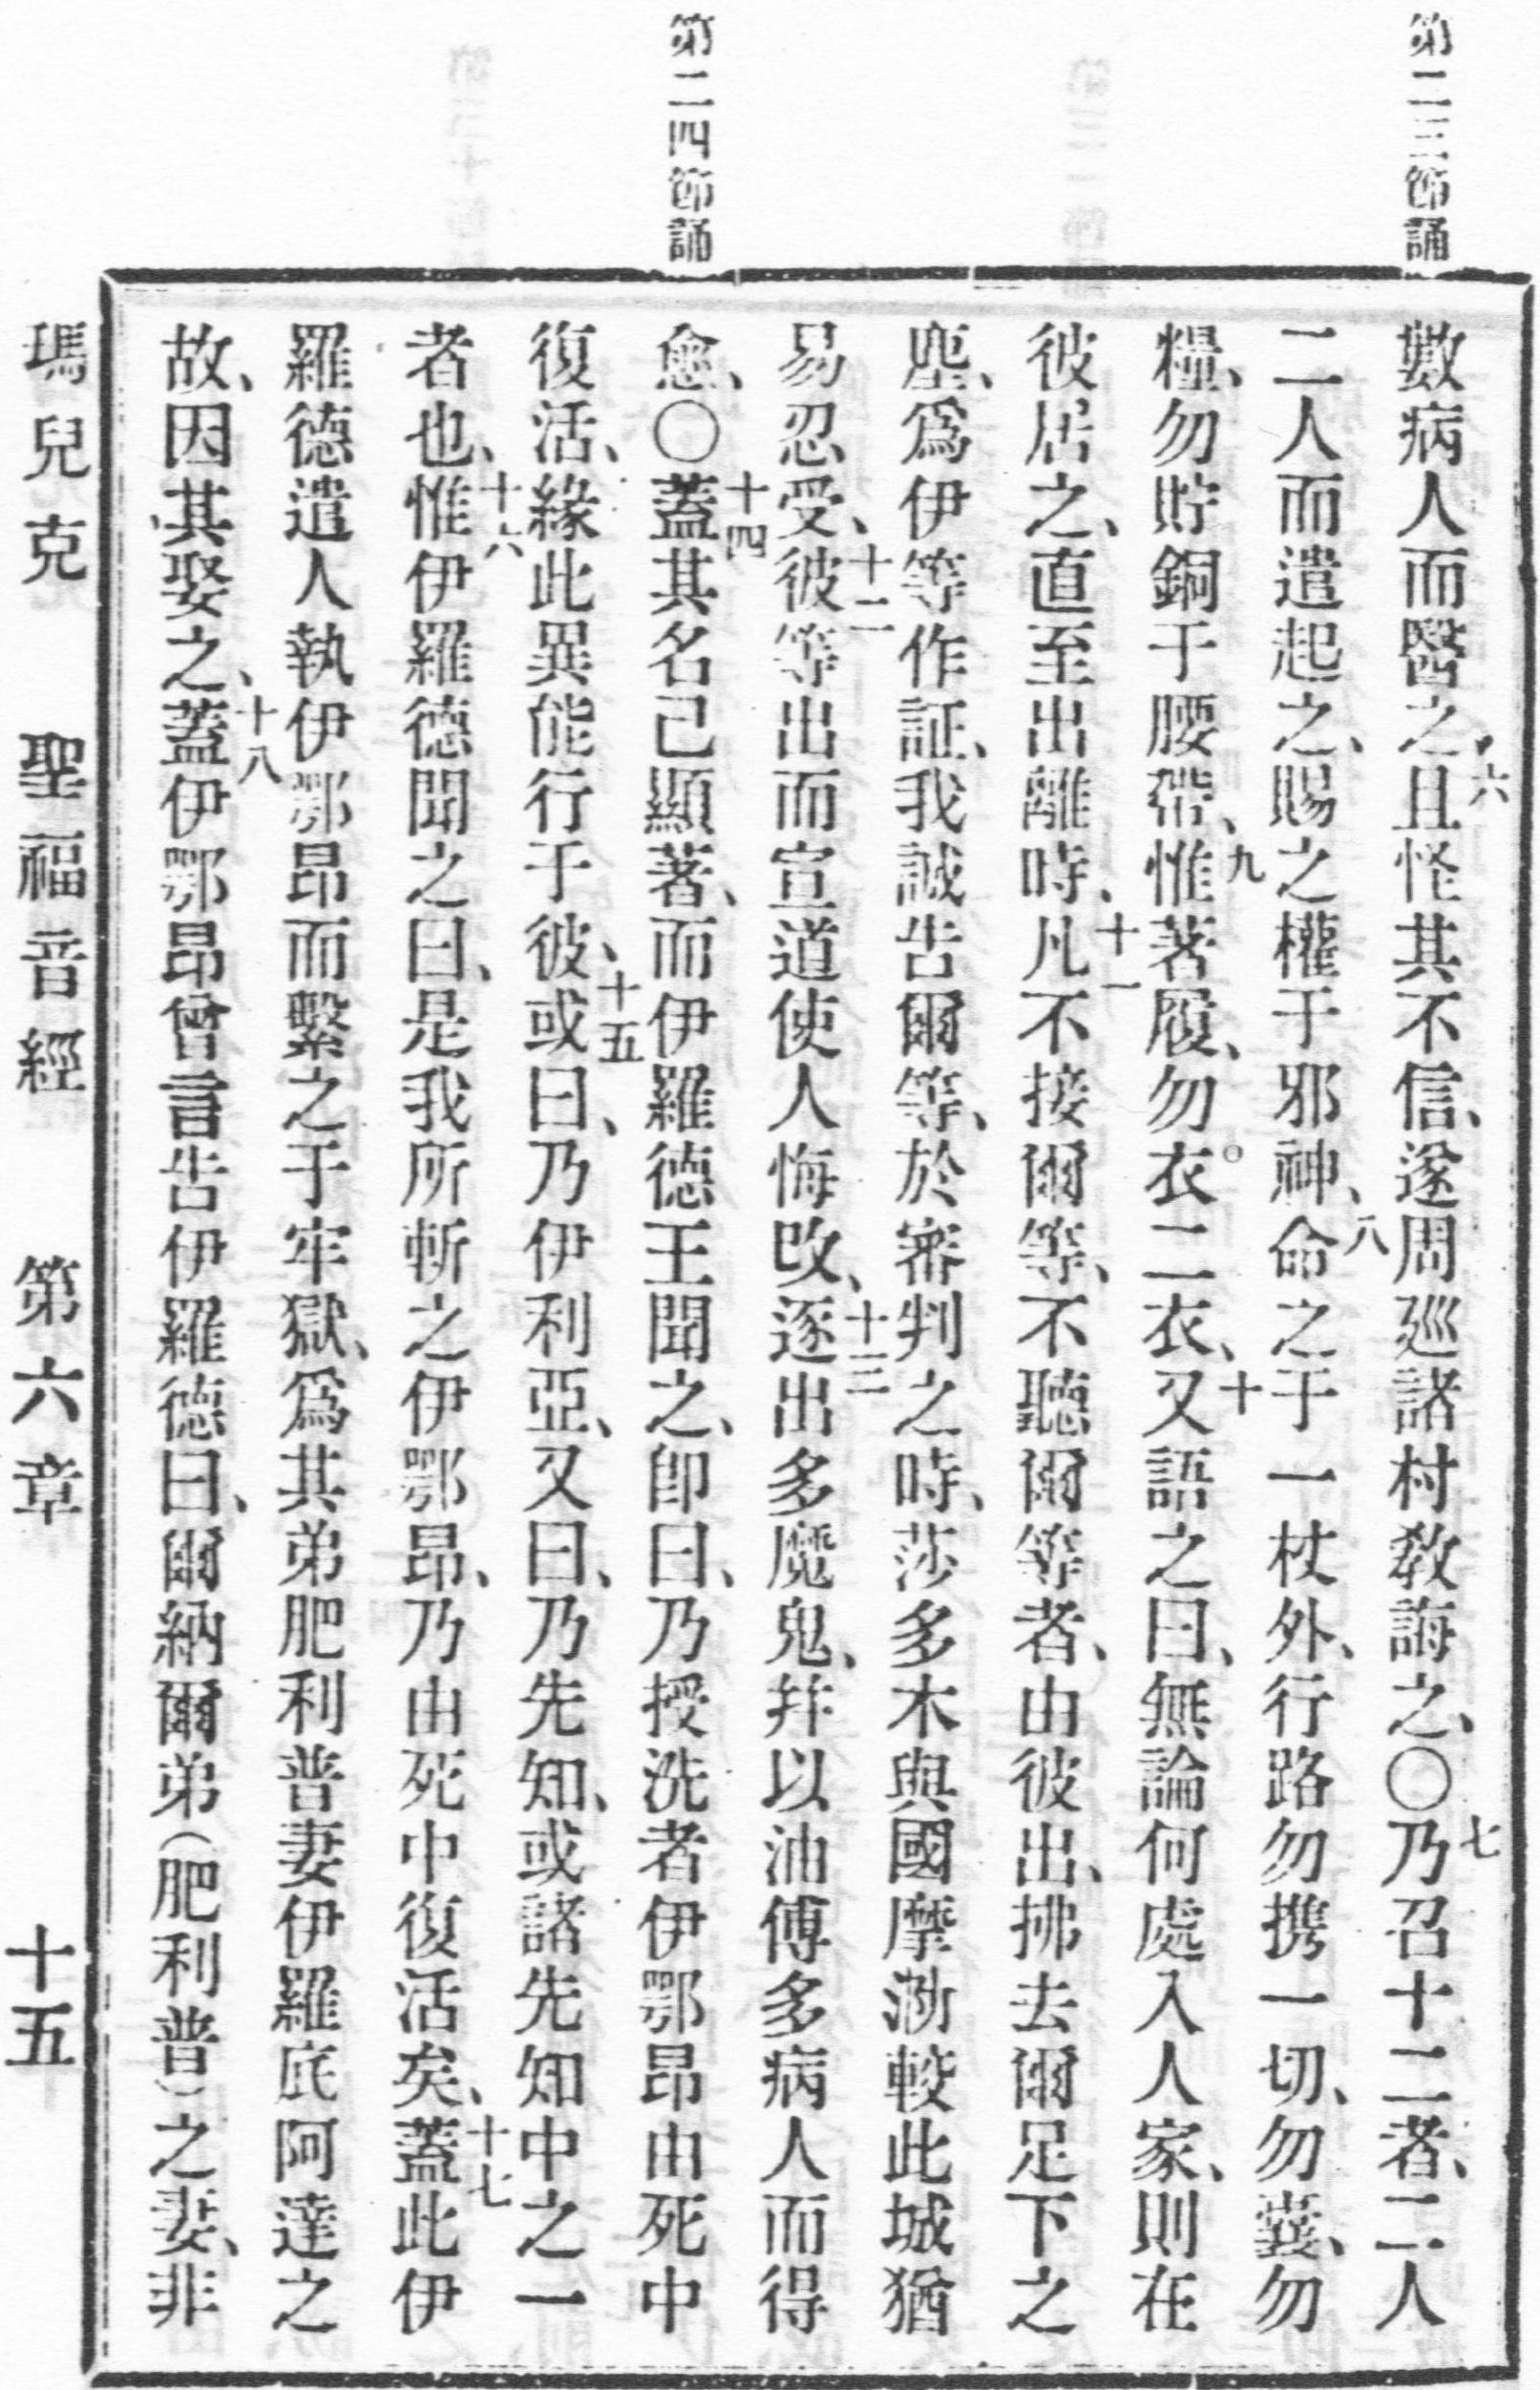 第二三節誦
第二四節誦
數病人而醫之、六且怪其不信、遂周廵諸村敎誨之、〇七乃召十二者、二人
二人而遣起之、賜之權于邪神、八命之于一杖外、行路勿携一切、勿囊、勿
糧、勿貯銅于腰帶、九惟著履、勿衣二衣、十又語之曰、無論何處入人家、則在
彼居之、直至出離時、十一凡不接爾等、不聽爾等者、由彼出、拂去爾足下之
塵、爲伊等作証、我誠吿爾等、於審判之時、莎多木與國摩泐較此城猶
易忍受、十二彼等出而宣道使人悔改、十三逐出多魔鬼、幷以油傅多病人而得
愈、〇十四蓋其名己顯著、而伊羅德王聞之、卽曰、乃授洗者伊鄂昂由死中
復活、緣此異能行于彼、十五或曰、乃伊利亞、又曰、乃先知、或諸先知中之一
者也、十六惟伊羅德聞之曰、是我所斬之伊鄂昂、乃由死中復活矣、十七蓋此伊
羅德遣人執伊鄂昂而繫之于牢獄、爲其弟肥利普妻伊羅底阿達之
故、因其娶之、十八蓋伊鄂昂曾言吿伊羅德曰、爾納爾弟（肥利普）之妻、非
瑪兒克 聖福音經 第六章 十五